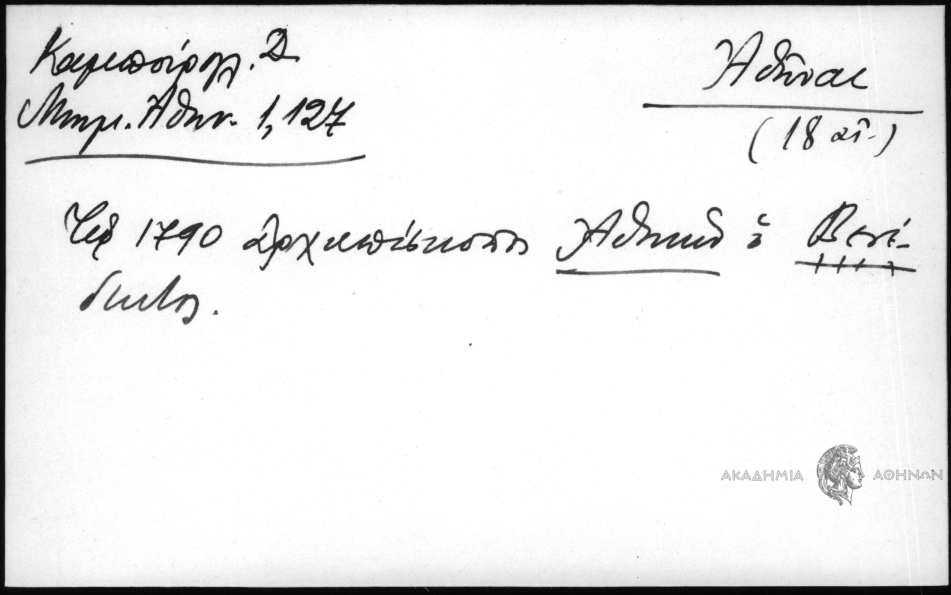 Καμπούρογλ. Δ
Μνημ. Ἀθην. 1, 127
Ἀθῆναι
(18 αἰ.)
Τῷ 1790 ἀρχιεπίσκοπος Ἀθηνῶν ὁ Βενέ-
δικτος.
ΑΚΑΔΗΜΙΑ ΑΘΗΝΩΝ